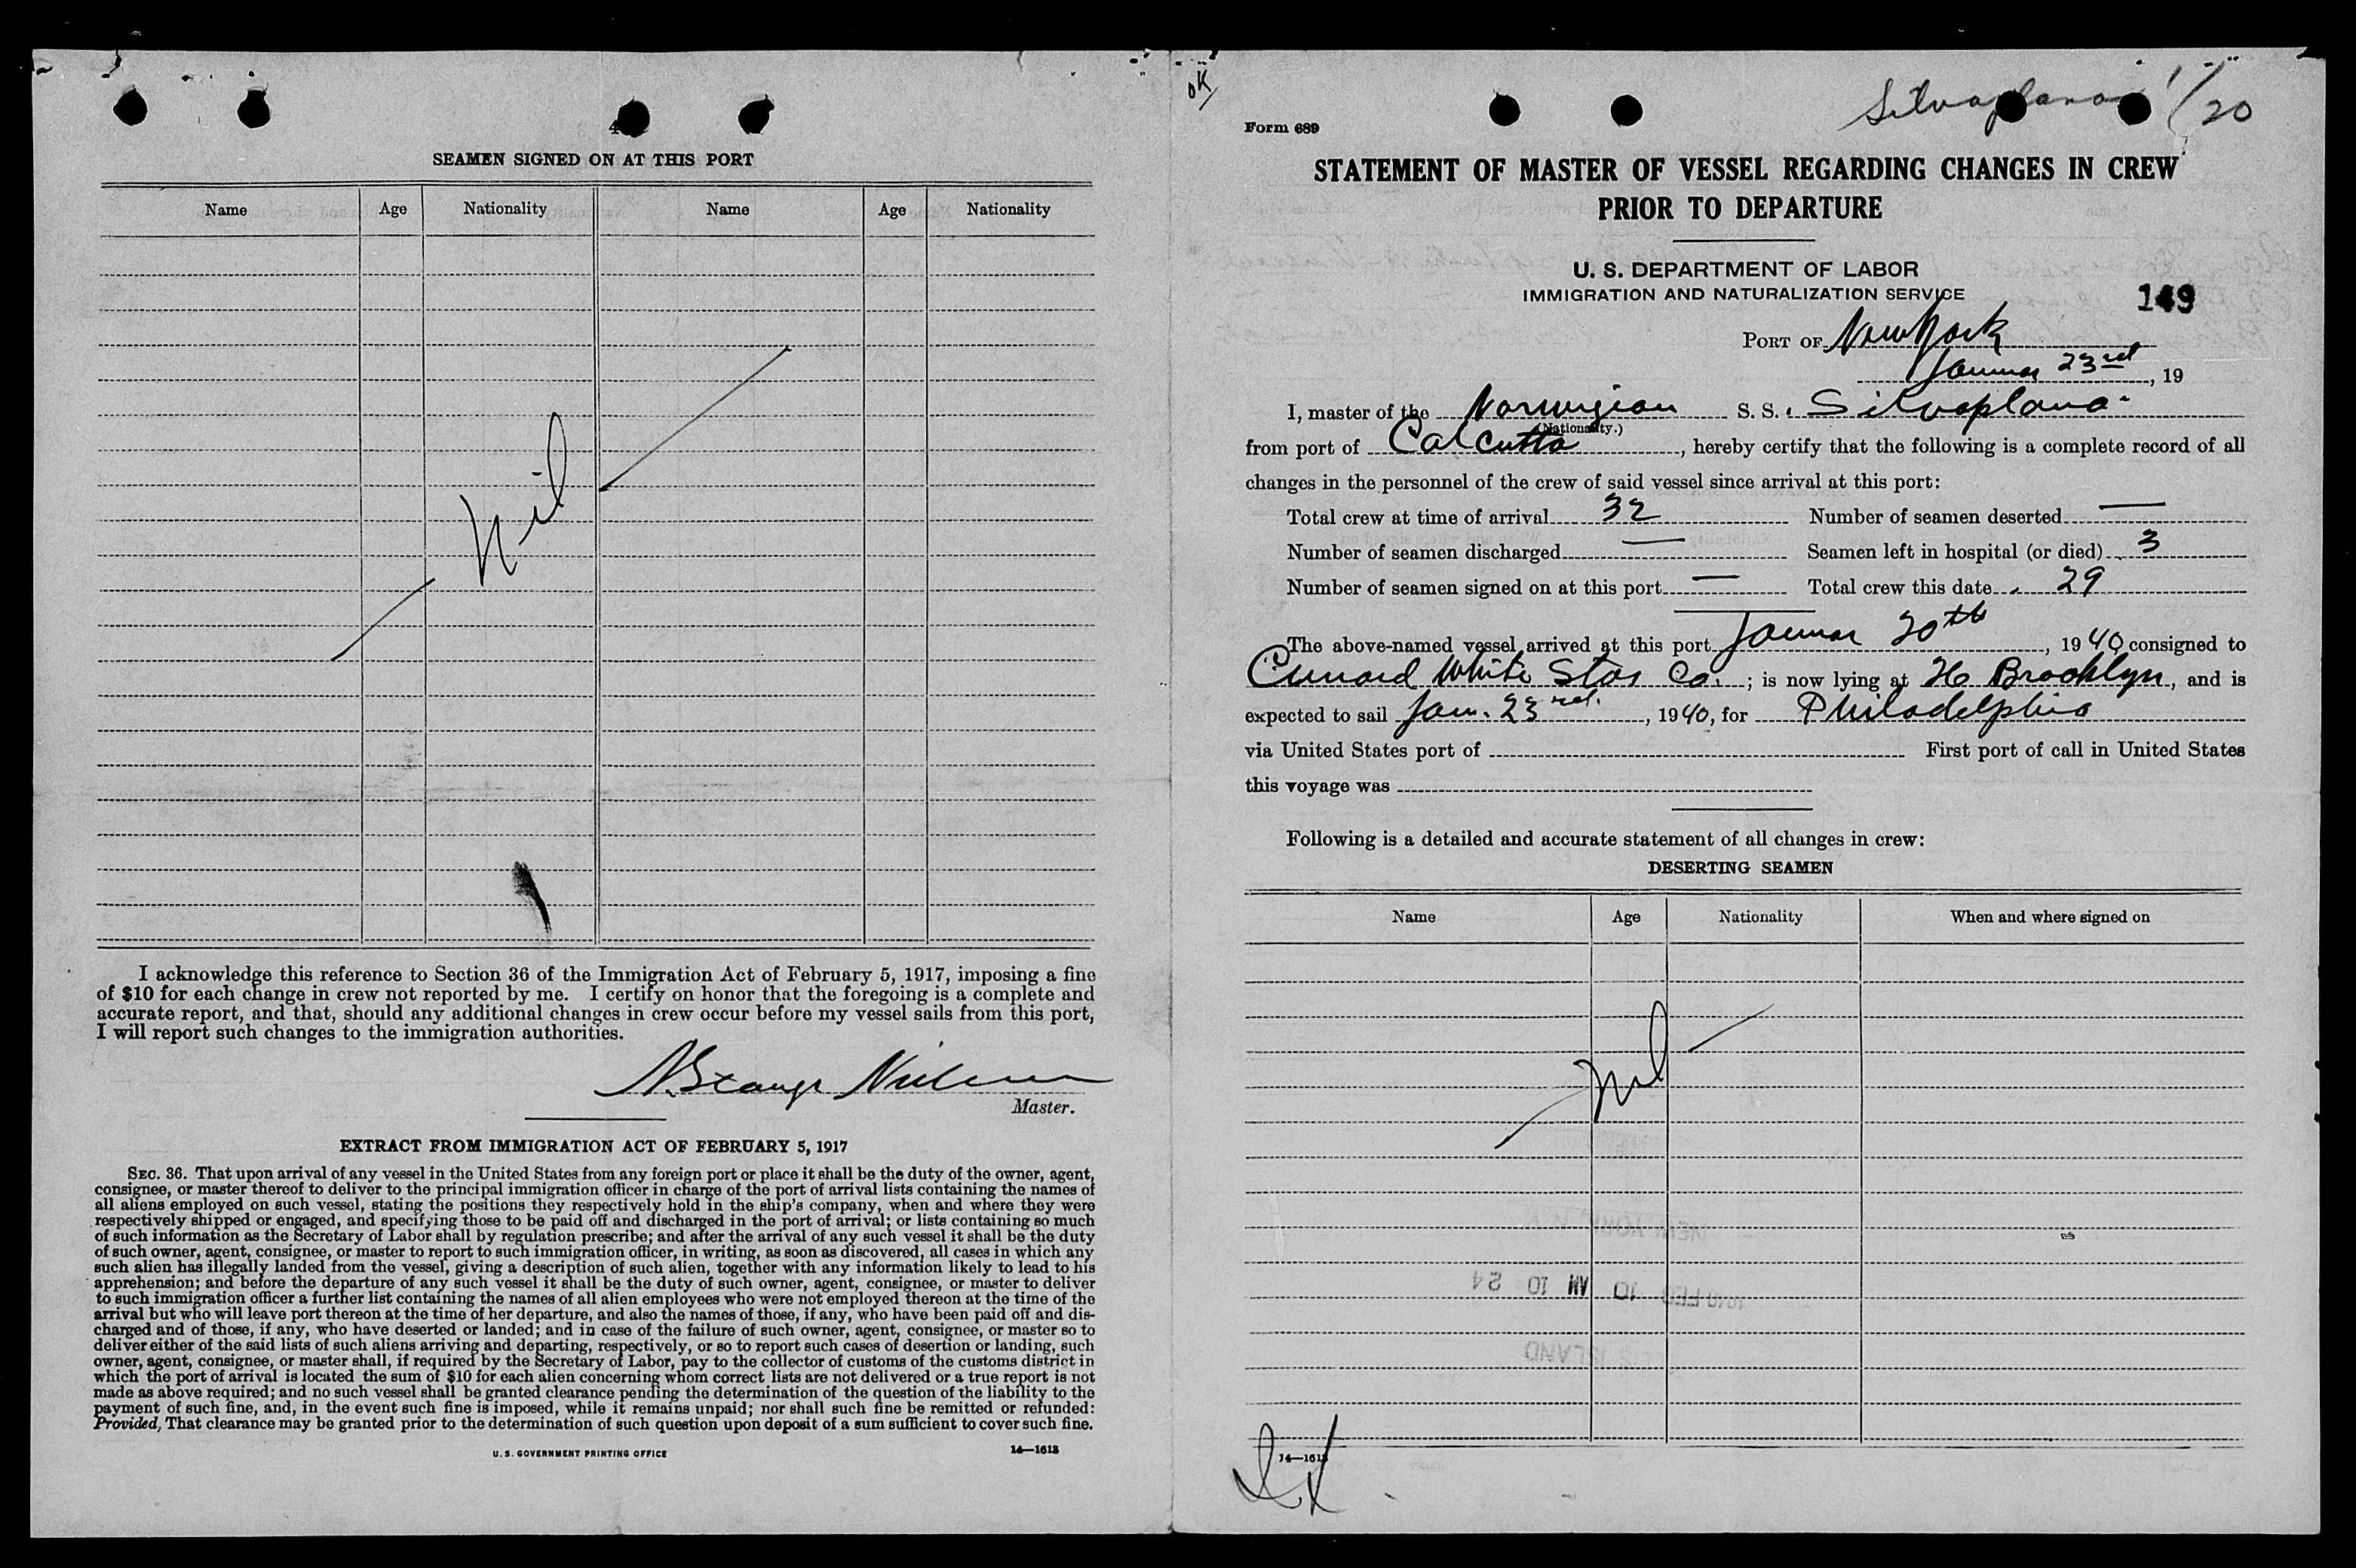 4
SEAMEN SIGNED ON AT THIS PORT
Name Age Nationality Name Age Nationality
Nil
I acknowledge this reference to Section 36 of the Immigration Act of February 5, 1917, imposing a fine
of $10 for each change in crew not reported by me. I certify on honor that the foregoing is a complete and
accurate report, and that, should any additional changes in crew occur before my vessel sails from this port,
I will report such changes to the immigration authorities.
Master.
EXTRACT FROM IMMIGRATION ACT OF FEBRUARY 5, 1917
SEC. 36. That upon arrival of any vessel in the United States from any foreign port or place it shall be the duty of the owner, agent,
consignee, or master thereof to deliver to the principal immigration officer in charge of the port of arrival lists containing the names of
all aliens employed on such vessel, stating the positions they respectively hold in the ship's company, when and where they were
respectively shipped or engaged, and specifying those to be paid off and discharged in the port of arrival; or lists containing so much
of such information as the Secretary of Labor shall by regulation prescribe; and after the arrival of any such vessel it shall be the duty
of such owner, agent, consignee, or master to report to such immigration officer, in writing, as soon as discovered, all cases in which any
such alien has illegally landed from the vessel, giving a description of such alien, together with any information likely to lead to his
apprehension; and before the departure of any such vessel it shall be the duty of such owner, agent, consignee, or master to deliver
to such immigration officer a further list containing the names of all alien employees who were not employed thereon at the time of the
arrival but who will leave port thereon at the time of her departure, and also the names of those, if any, who have been paid off and dis-
charged and of those, if any, who have deserted or landed; and in case of the failure of such owner, agent, consignee, or master so to
deliver either of the said lists of such aliens arriving and departing, respectively, or so to report such cases of desertion or landing, such
owner, agent, consignee, or master shall, if required by the Secretary of Labor, pay to the collector of customs of the customs district in
which the port of arrival is located the sum of $10 for each alien concerning whom correct lists are not delivered or a true report is not
made as above required; and no such vessel shall be granted clearance pending the determination of the question of the liability to the
payment of such fine, and, in the event such fine is imposed, while it remains unpaid; nor shall such fine be remitted or refunded:
Provided, That clearance may be granted prior to the determination of such question upon deposit of a sum sufficient to cover such fine.
U. S. GOVERNMENT PRINTING OFFICE 14—1613
OK
Silvaplana 1/20
Form 689
STATEMENT OF MASTER OF VESSEL REGARDING CHANGES IN CREW
PRIOR TO DEPARTURE
U. S. DEPARTMENT OF LABOR
IMMIGRATION AND NATURALIZATION SERVICE
149
PORT OF New York
Januar 23rd, 19
I, master of the Norwegian S. S. Silvaplana
(Nationality.)
from port of Calcutta, hereby certify that the following is a complete record of all
changes in the personnel of the crew of said vessel since arrival at this port:
Total crew at time of arrival 32 Number of seamen deserted —
Number of seamen discharged — Seamen left in hospital (or died) 3
Number of seamen signed on at this port — Total crew this date 29
The above-named vessel arrived at this port Januar 20th, 1940 consigned to
Cunard White Star Co.; is now lying at 36 Brooklyn, and is
expected to sail Jan. 23rd., 1940, for Philadelphia
via United States port of First port of call in United States
this voyage was
Following is a detailed and accurate statement of all changes in crew:
DESERTING SEAMEN
Name Age Nationality When and where signed on
Nil
14—1613